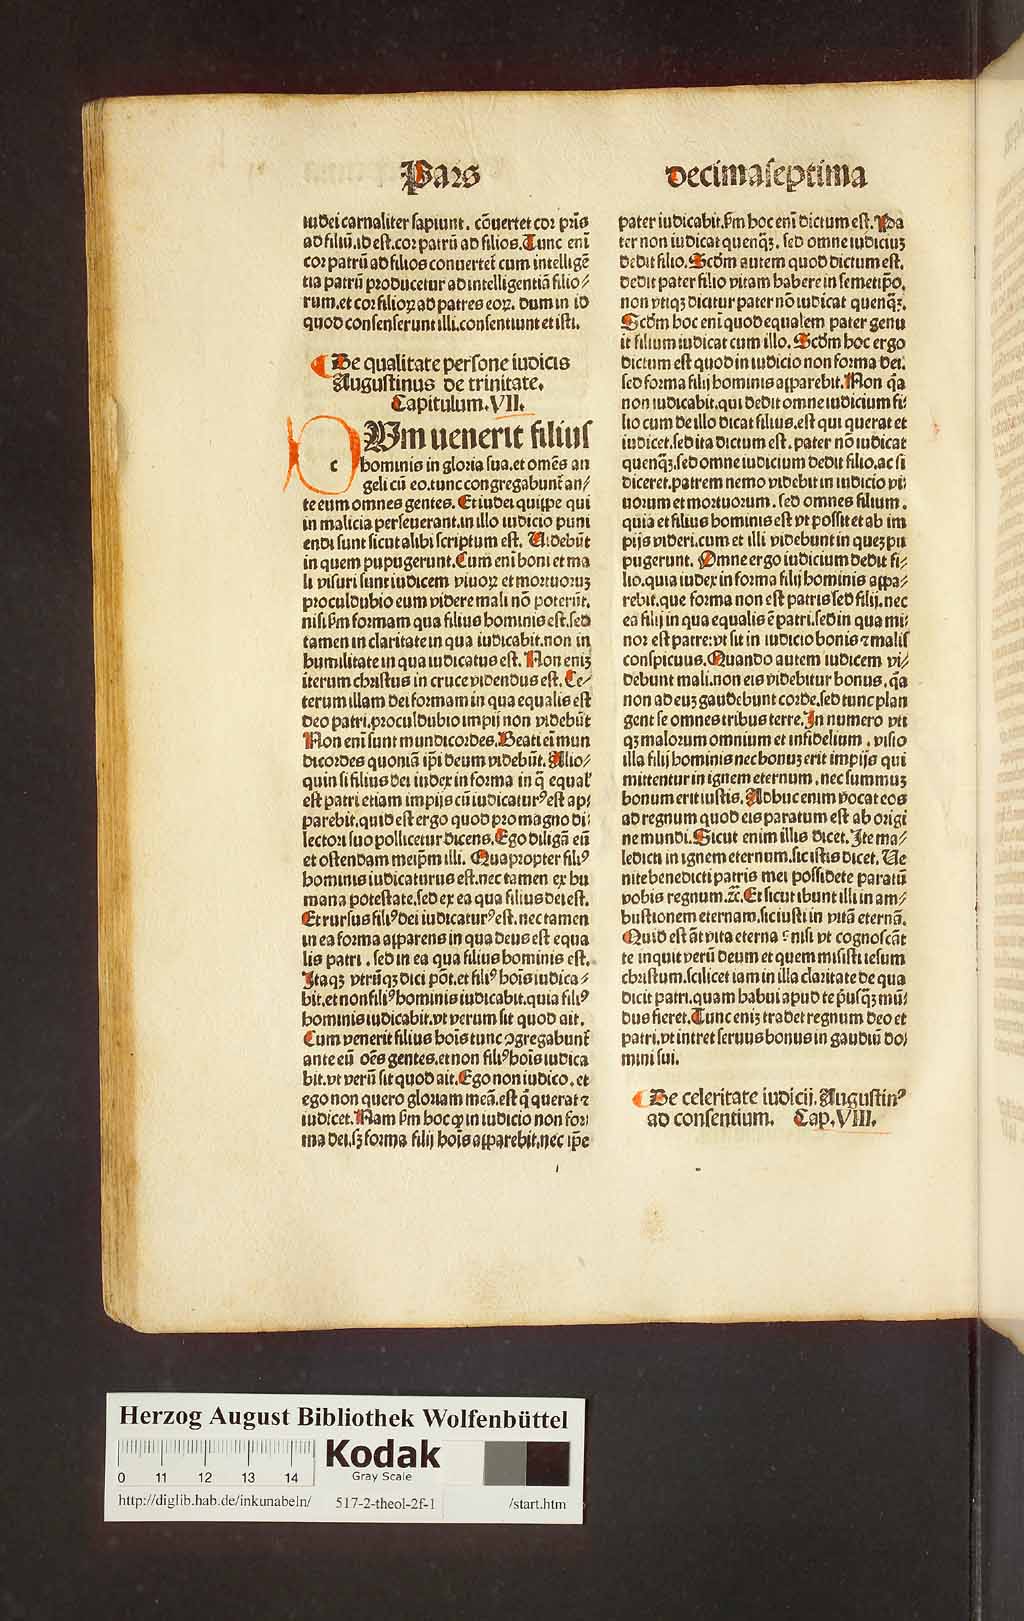 Pars decimaseptima
iudei carnaliter sapiunt. cõuertet cor pr̃is
ad filiũ. id est. cor patrũ ad filios. Tunc eni᷑
cor patrũ ad filios conuertet᷑ cum intelligẽ
tia patrũ producetur ad intelligentiã filio⸗
rum. et cor filioꝝ ad patres eoꝝ. dum in id
quod consenserunt illi. consentiunt et isti.
De qualitate persone iudicis
Augustinus de trinitate.
Capitulum. VII.
c Vm uenerit filius
hominis in gloria sua. et omẽs an
geli cũ eo. tunc congregabunt᷑ an⸗
te eum omnes gentes. Et iudei quippe qui
in malicia perseuerant. in illo iudicio puni
endi sunt sicut alibi scriptum est. Uidebũt
in quem pupugerunt. Cum eni᷑ boni et ma
li visuri sunt iudicem viuoꝝ et mortuoruꝫ
proculdubio eum videre mali nõ poterũt.
nisi ẜm formam qua filius hominis est. sed
tamen in claritate in qua iudicabit. non in
humilitate in qua iudicatus est. Non eniꝫ
iterum christus in cruce videndus est. Ce⸗
terum illam dei formam in qua equalis est
deo patri. proculdubio impij non videbũt
Non eni᷑ sunt mundicordes. Beati ei᷑ mun
dicordes quoniã ip̃i deum videbũt. Alio⸗
quin si filius dei iudex in forma in q̃ equal᷑
est patri etiam impijs cũ iudicaturꝰ est ap⸗
parebit. quid est ergo quod pro magno di⸗
lectori suo pollicetur dicens. Ego diligã eũ
et ostendam meip̃m illi. Quapropter filiꝰ
hominis iudicaturus est. nec tamen ex hu
mana potestate. sed ex ea qua filius dei est.
Et rursus filiꝰ dei iudicaturꝰ est. nec tamen
in ea forma apparens in qua deus est equa
lis patri. sed in ea qua filius hominis est.
Itaqꝫ vtrũqꝫ dici põt. et filiꝰ hoĩs iudica⸗
bit. et non filiꝰ hominis iudicabit. quia filiꝰ
hominis iudicabit. vt verum sit quod ait.
Cum venerit filius hoĩs tunc ꝯgregabunt᷑
ante eũ oẽs gentes. et non filiꝰ hoĩs iudica
bit. vt verũ sit quod ait. Ego non iudico. et
ego non quero gloriam meã. est q̃ querat ⁊
iudicet. Nam ẜm hoc ꝙ in iudicio non for⸗
ma dei. sꝫ forma filij hoĩs apparebit. nec ip̃e
pater iudicabit. ẜm hoc eni᷑ dictum est. Pa
ter non iudicat quenqꝫ. sed omne iudiciuꝫ
dedit filio. Scd̃m autem quod dictum est.
dedit pater filio vitam habere in semetip̃o.
non vtiqꝫ dicitur pater nõ iudicat quenqꝫ.
Scd̃m hoc eni᷑ quod equalem pater genu
it filium iudicat cum illo. Scd̃m hoc ergo
dictum est quod in iudicio non forma dei.
sed forma filij hominis apparebit. Non q̃a
non iudicabit. qui dedit omne iudicium fi⸗
lio cum de illo dicat filius. est qui querat et
iudicet. sed ita dictum est. pater nõ iudicat
quenqꝫ. sed omne iudicium dedit filio. ac si
diceret. patrem nemo videbit in iudicio vi⸗
uorum et mortuorum. sed omnes filium.
quia et filius hominis est vt possit et ab im
pijs videri. cum et illi videbunt in queꝫ pu
pugerunt. Omne ergo iudicium dedit fi⸗
lio. quia iudex in forma filij hominis appa⸗
rebit. que forma non est patris sed filij. nec
ea filij in qua equalis ẽ patri. sed in qua mi⸗
nor est patre: vt sit in iudicio bonis ⁊ malis
conspicuus. Quando autem iudicem vi⸗
debunt mali. non eis videbitur bonus. q̃a
non ad euꝫ gaudebunt corde. sed tunc plan
gent se omnes tribus terre. In numero vti
qꝫ malorum omnium et infidelium. visio
illa filij hominis nec bonuꝫ erit impijs qui
mittentur in ignem eternum. nec summuꝫ
bonum erit iustis. Adhuc enim vocat eos
ad regnum quod eis paratum est ab origi
ne mundi. Sicut enim illis dicet. Ite ma⸗
ledicti in ignem eternum. sic istis dicet. Ue
nite benedicti patris mei possidete paratũ
vobis regnum. ⁊c̃. Et sicut ibunt illi in am⸗
bustionem eternam. sic iusti in vitã eternã.
Quid est ãt vita eterna ? nisi vt cognoscãt
te inquit verũ deum et quem misisti iesum
christum. scilicet iam in illa claritate de qua
dicit patri. quam habui apud te p̃usq̃ꝫ mũ⸗
dus fieret. Tunc eniꝫ tradet regnum deo et
patri. vt intret seruus bonus in gaudiũ do⸗
mini sui.
De celeritate iudicij. Augustinꝰ
ad consentium. Cap. VIII.
Herzog August Bibliothek Wolfenbüttel
Kodak
Gray Scale
0 11 12 13 14
http://diglib.hab.de/inkunabeln/ 517-2-theol-2f-1 /start.htm